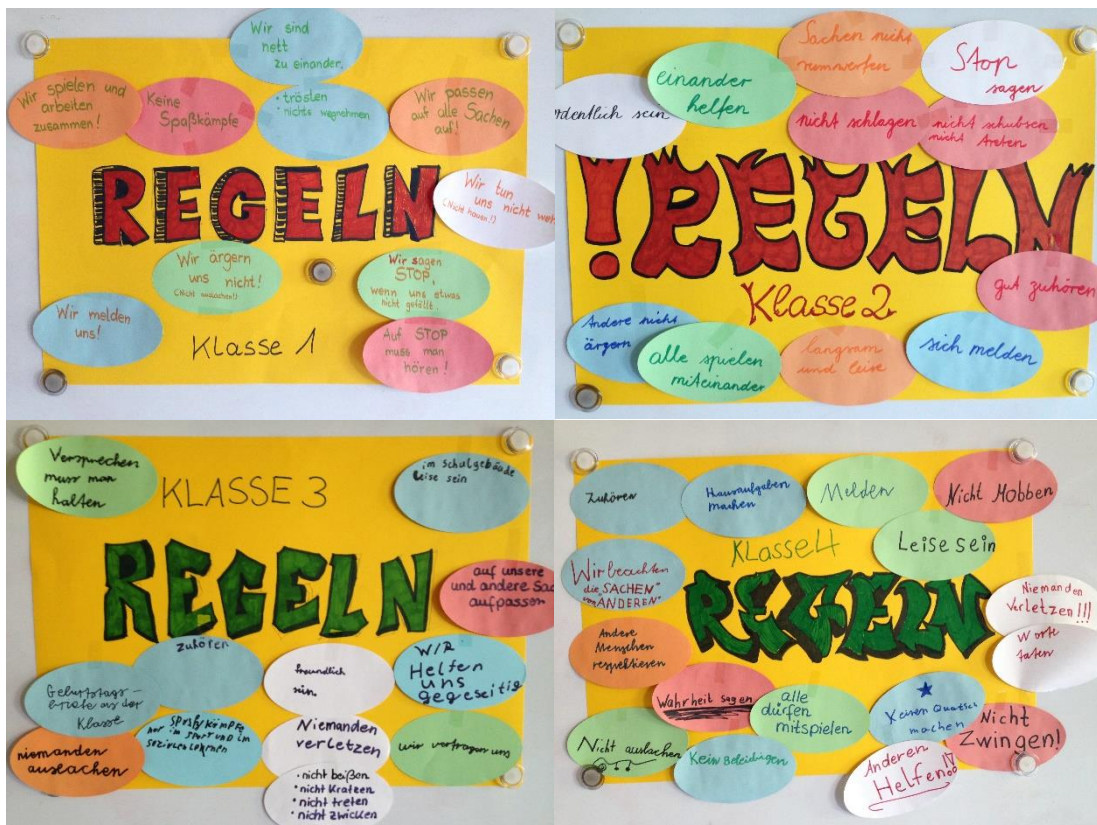 Wir sind
nett
zu einander.
Wir spielen und
arbeiten
zusammen!
Keine
Spaßkämpfe
• trösten
• nichts wegnehmen
Wir passen
auf alle Sachen
auf!
REGELN
Wir tun
uns nicht weh
(Nicht hauen!!)
Wir ärgern
uns nicht!
(Nicht auslachen!!)
Wir sagen
STOP,
wenn uns etwas
nicht gefällt.
Wir melden
uns!
Klasse 1
Auf STOP
muss man
hören!
rdentlich sein
einander
helfen
Sachen nicht
rumwerfen
Stop
sagen
nicht schlagen
nicht schubsen
nicht treten
!REGELN
gut zuhören
Klasse 2
Andere nicht
ärgern
alle spielen
miteinander
langsam
und leise
sich melden
Versprechen
muss man
halten
KLASSE 3
im Schulgebäude
leise sein
REGELN
auf unsere
und andere Sac
aufpassen
zuhören
freundlich
sein.
WIR
Helfen
uns
gegeseitig
Geburtstags-
aus der
Klasse
Spaßkämpfe
nur im Sport und im
niemanden
auslachen
Niemanden
verletzen
wir vertragen uns
• nicht beißen
• nicht Kratzen
• nicht treten
• nicht zwicken
Zuhören
Hausaufgaben
machen
Melden
Nicht Mobben
KLASSE 4
Leise sein
Wir beachten
die "SACHEN"
von "ANDEREN"
REGELN
Niemanden
Verletzen!!!
Worte
taten
Andere
Menschen
respektieren
Wahrheit sagen
alle
dürfen
mitspielen
Keinen Quatsch
machen
Nicht
Zwingen!
Nicht auslachen
Kein Beleidigen
Anderen
Helfen!!